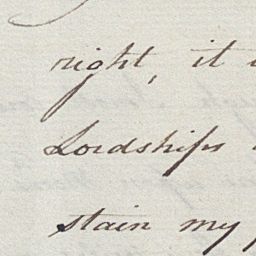 right, it
Lordships
stain my